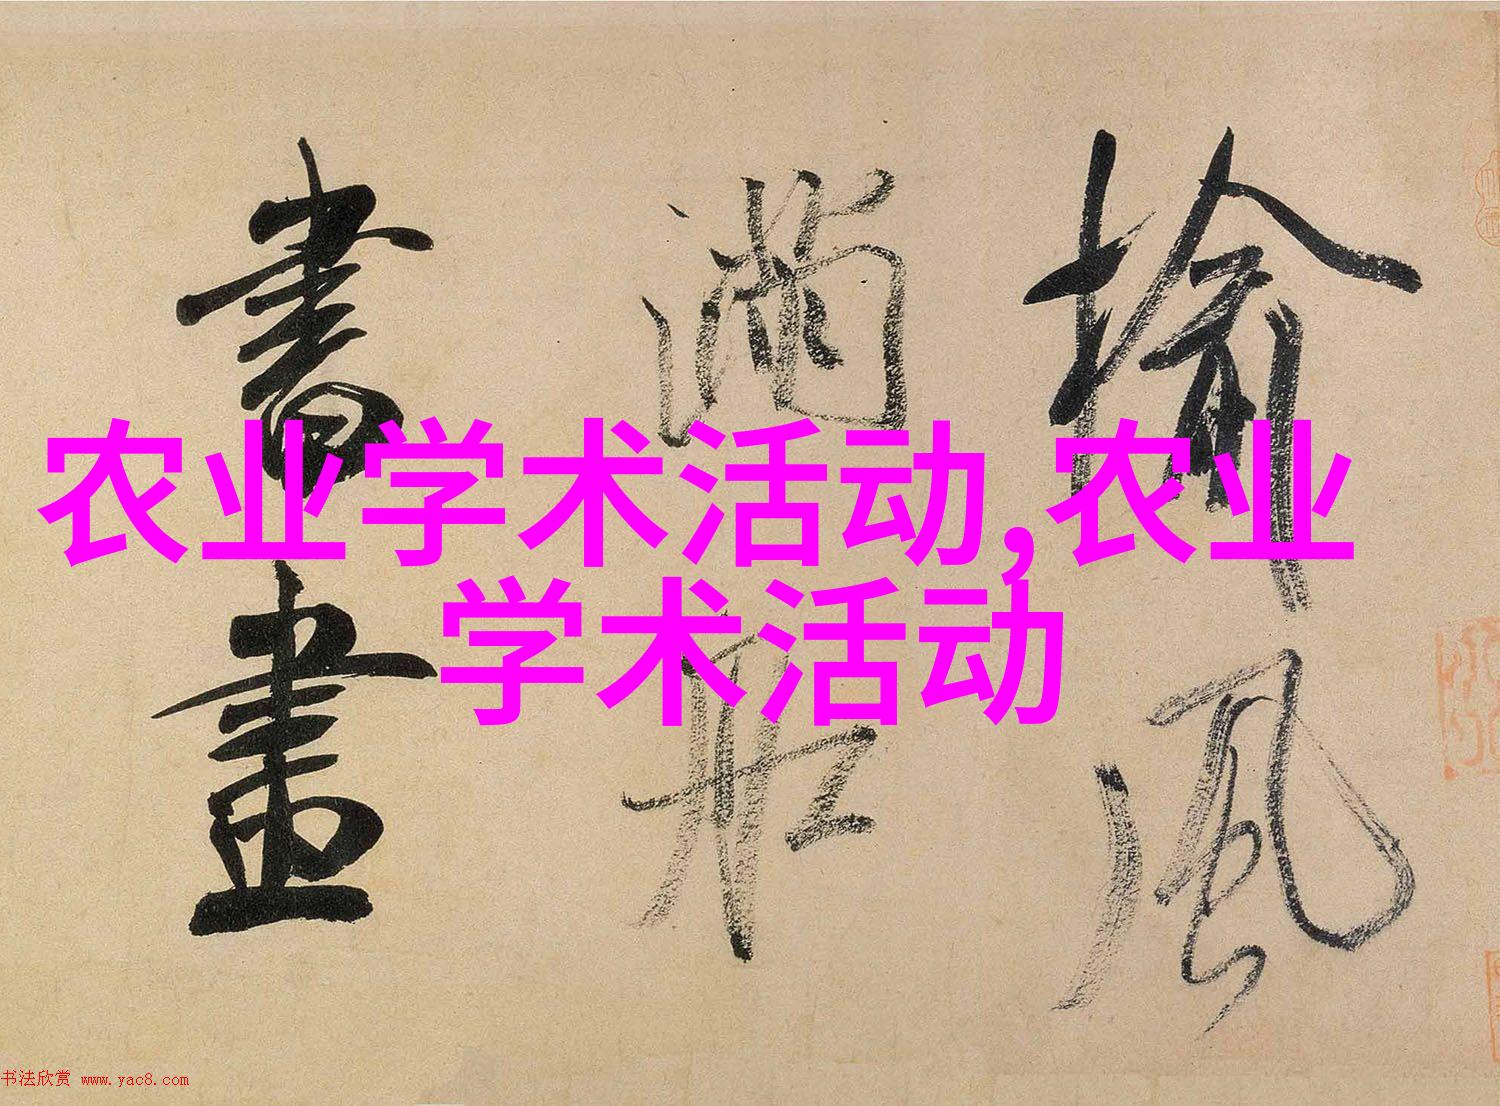 揄風
滿牀
書畫
农业学术活动,农业
学术活动
书法欣赏 www.yac8.com